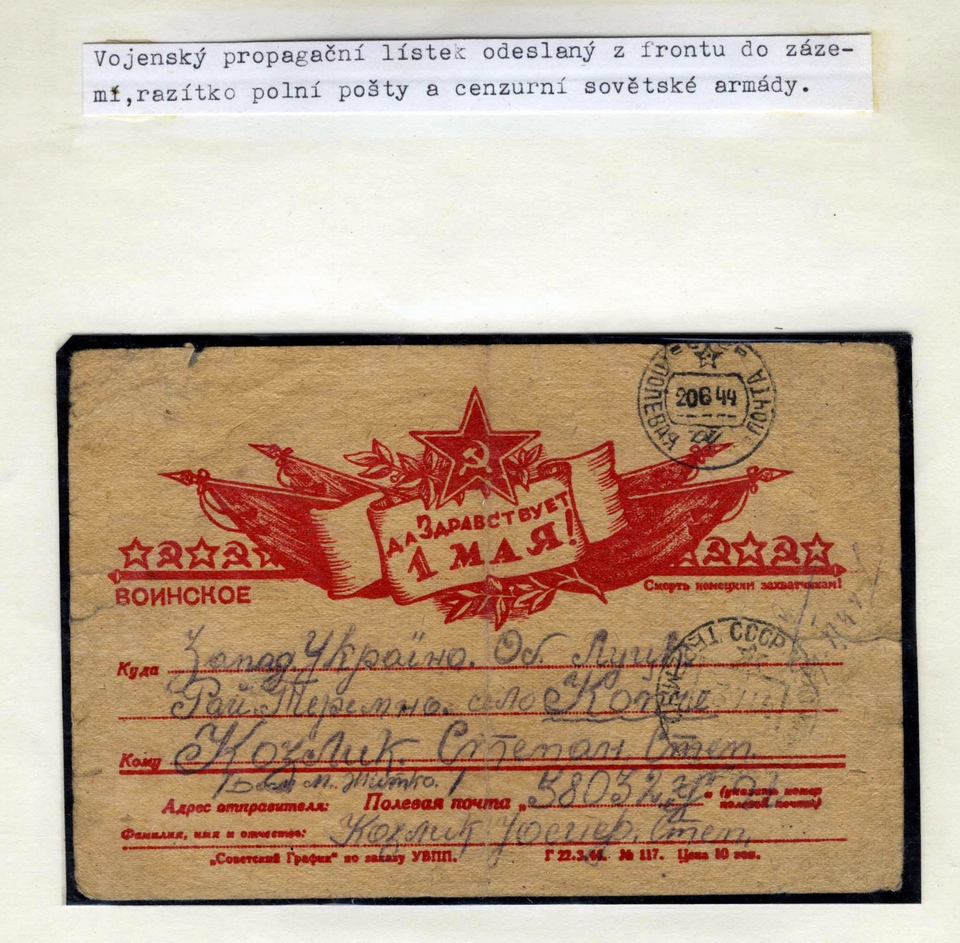 Vojenský propagační lístek odeslaný z frontu do záze-
mí,razítko polní pošty a cenzurní sovětské armády.
ПОЛЕВАЯ ПОЧТА
20 6 44
ДА ЗДРАВСТВУЕТ
1 МАЯ!
ВОИНСКОЕ
Смерть немецким захватчикам!
СССР
Куда Запад, Україна. Об. Луцк
Рай. Теремно. село
Кому Козлик. Степан Степ
Адрес отправителя: Полевая почта „38032 " (указать номер
полевой почты)
Фамилия, имя и отчество: Козлик Степ,
„Советский График" по заказу УВПП. Г 22.3.44. № 117. Цена 10 коп.